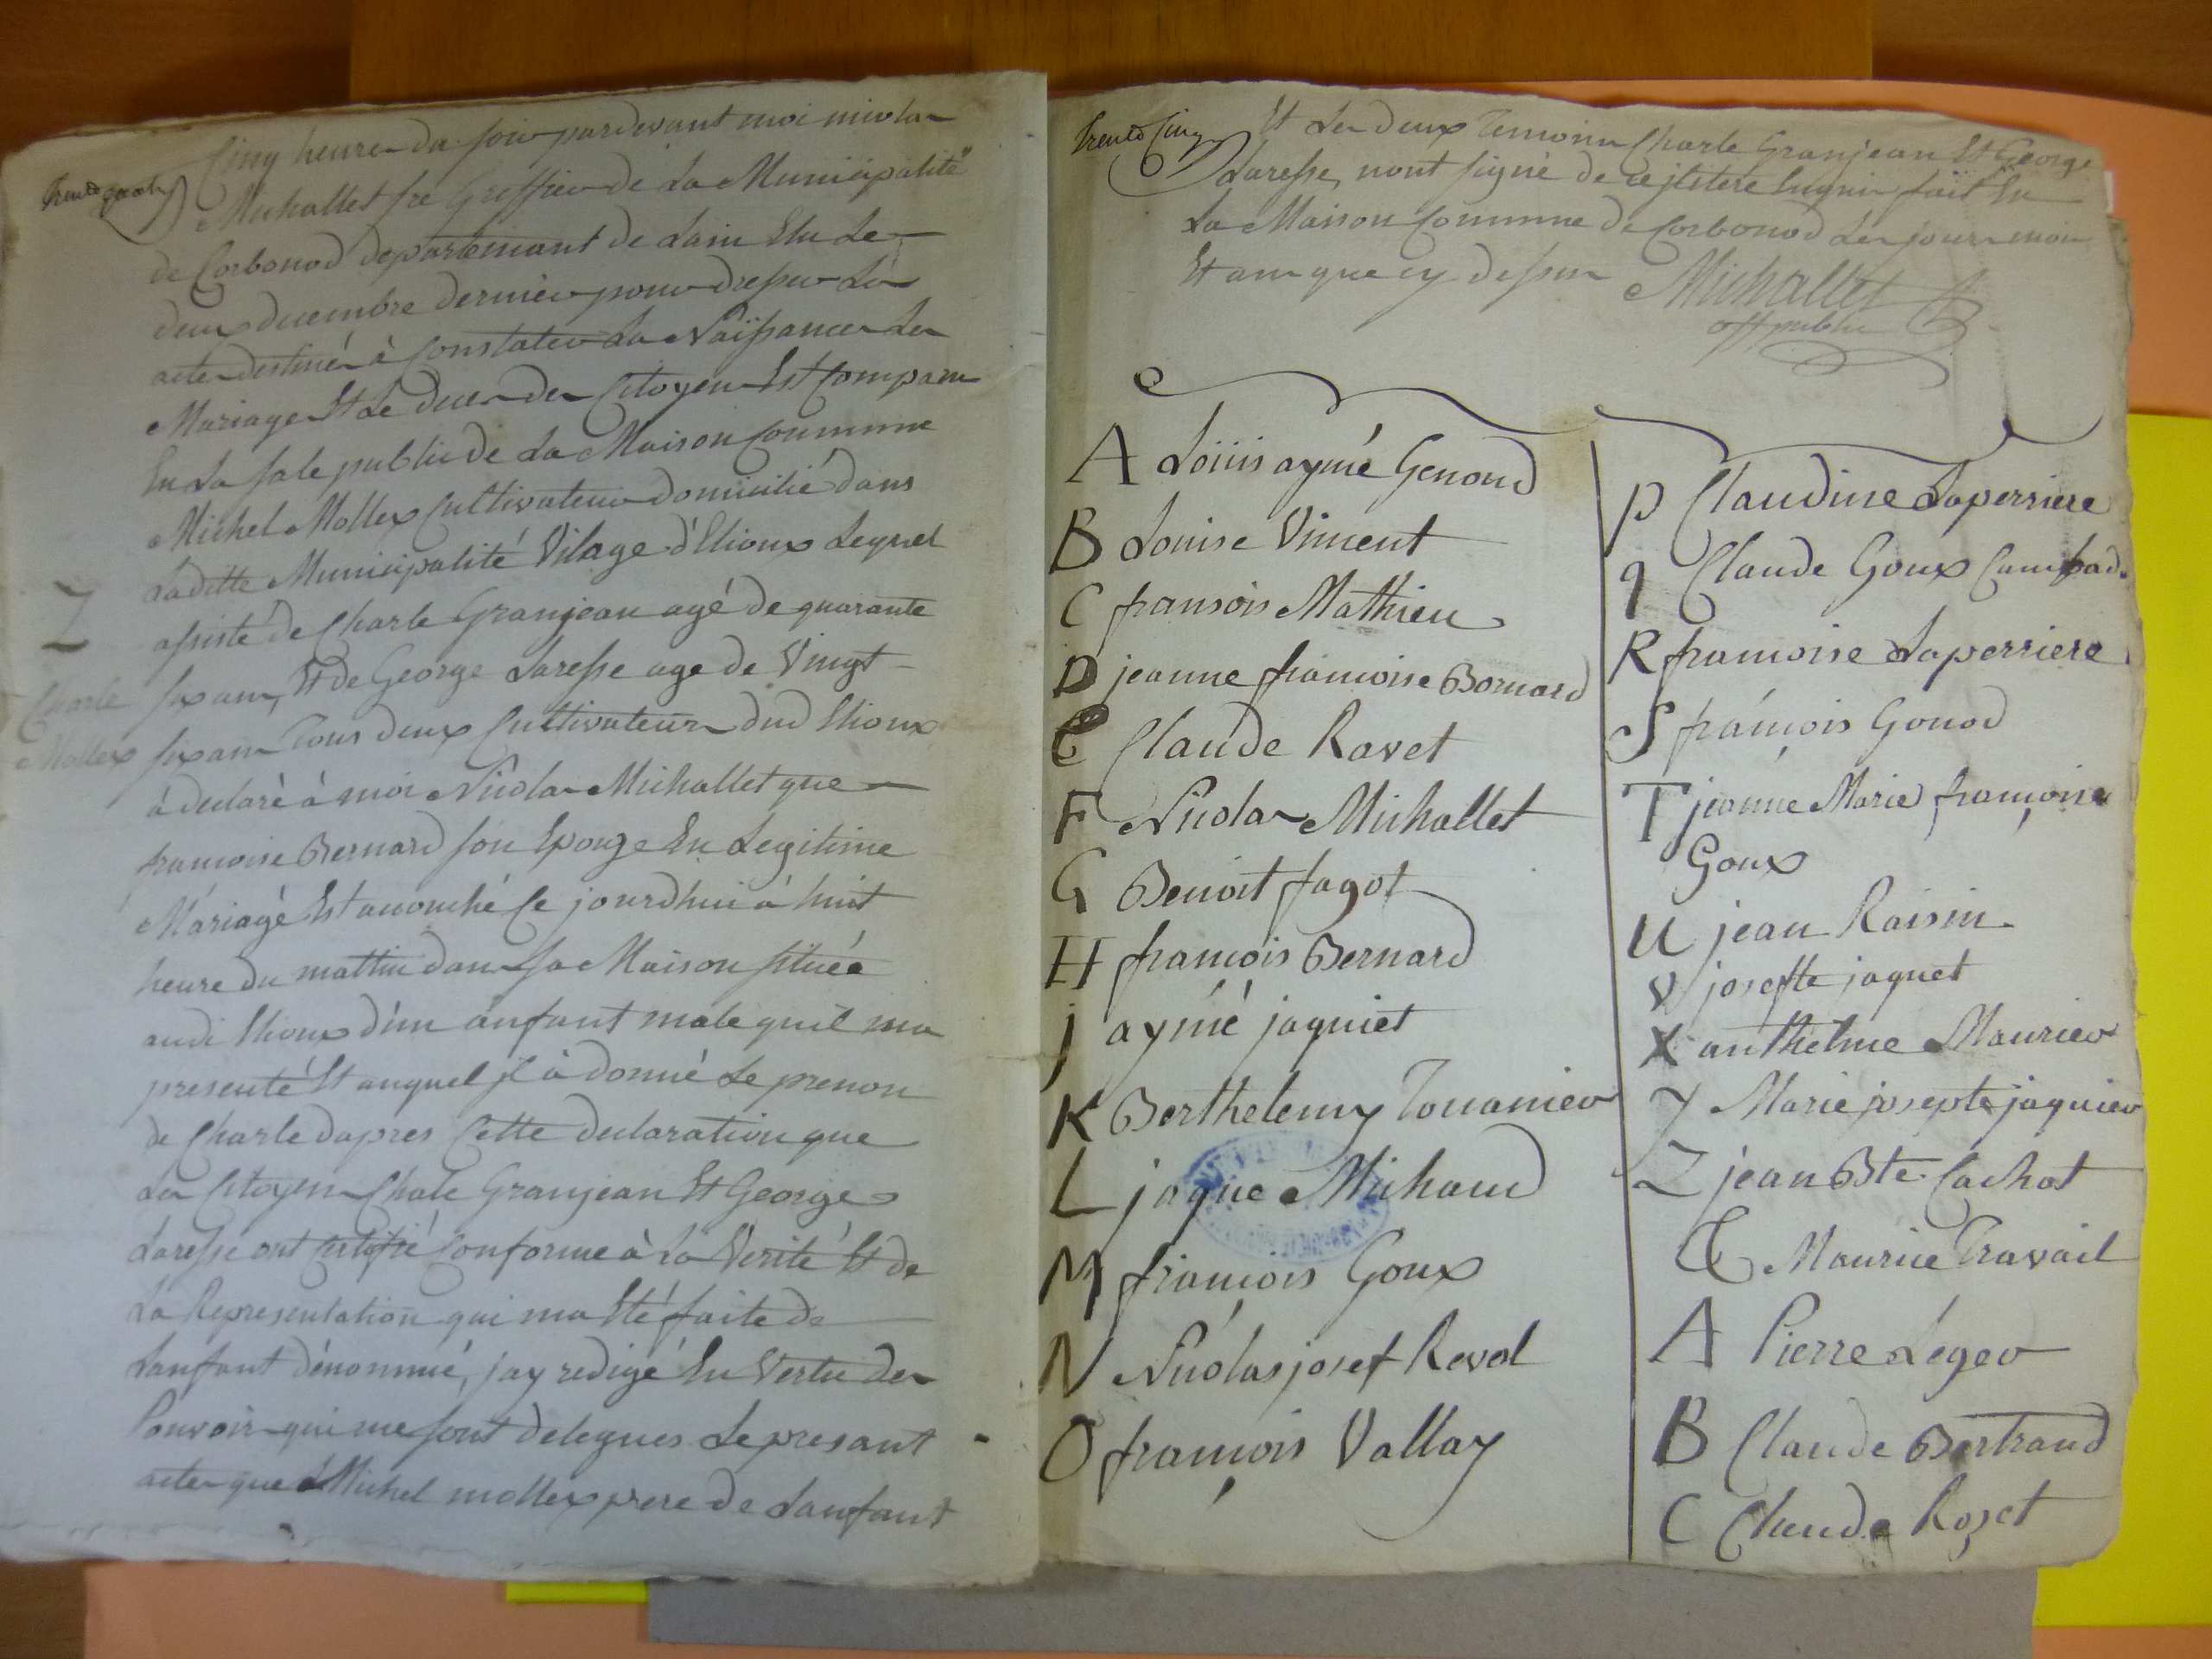 trente quatre
Cinq heure du soir pardevant moi nicolas
Michallet sre Greffier de La Municipalité
de Corbonod departemant de Lain Elu Le
deux decembre dernier pour dresser Les
actes destiné à Constater La Naissance Les
Mariage Et Le deces des Citoyen Est Comparu
En La sale public de La Maison Commune
Michel Mollex Cultivateur domicilié dans
Laditte Municipalité Vilage d'Elioux Lequel
Z
assisté de Charle Granjean agé de quarante
Charle
six ans, Et de George Laresse age de Vingt
Mollex
six ans Tous deux Cultivateur dud Elioux
à declaré à moi Nicolas Michallet que
francoise Bernard son Epouze En Legitime
Mariagé Est acouché Ce jourdhui à huit
heure du mattin dans sa Maison située
audi Elioux d'un anfant male quil ma
presenté Et auquel jl à donné Le prenon
de Charle dapres Cette declaration que
Les Citoyen Chale Granjean Et George
Laresse ont Certifié Conforme à La Verité Et de
La Representation qui ma Eté faite de
Lanfant dénommé, jay redigé En Vertu des
Pouvoir qui me sont delegues Le presant
actes que Michel mollex pere de Lanfant
trente Cinq
Et Les deux Temoins Charle Granjean Et George
Laresse, nont signé de ce fait En
La Maison Commune de Corbonod Les jour mois
Et ans que cy dessus Michallet
off public
A Loüis aymé Genoud
B Louise Vincent
C fransois Mathieu
D jeanne francoise Bornard
E Claude Ravet
F Nicolas Michallet
G Benoit fagot
H francois Bernard
J aymé jaquiet
K Berthelemy Touanier
L jaque Michaud
M francois Goux
N Nicolas josef Revel
O françois Vallay
P Claudine Laperriere
q Claude Goux
R francoise Laperriere
S francois Gonod
T jeanne Marie françoise
Goux
U jean Raisin
V josefte jaquet
X anthelme Maurier
Y Marie josepte jaquier
Z jean Bte Cachot
& Maurice Travail
A Pierre Léger
B Claude Bertrand
C Claude Rozet